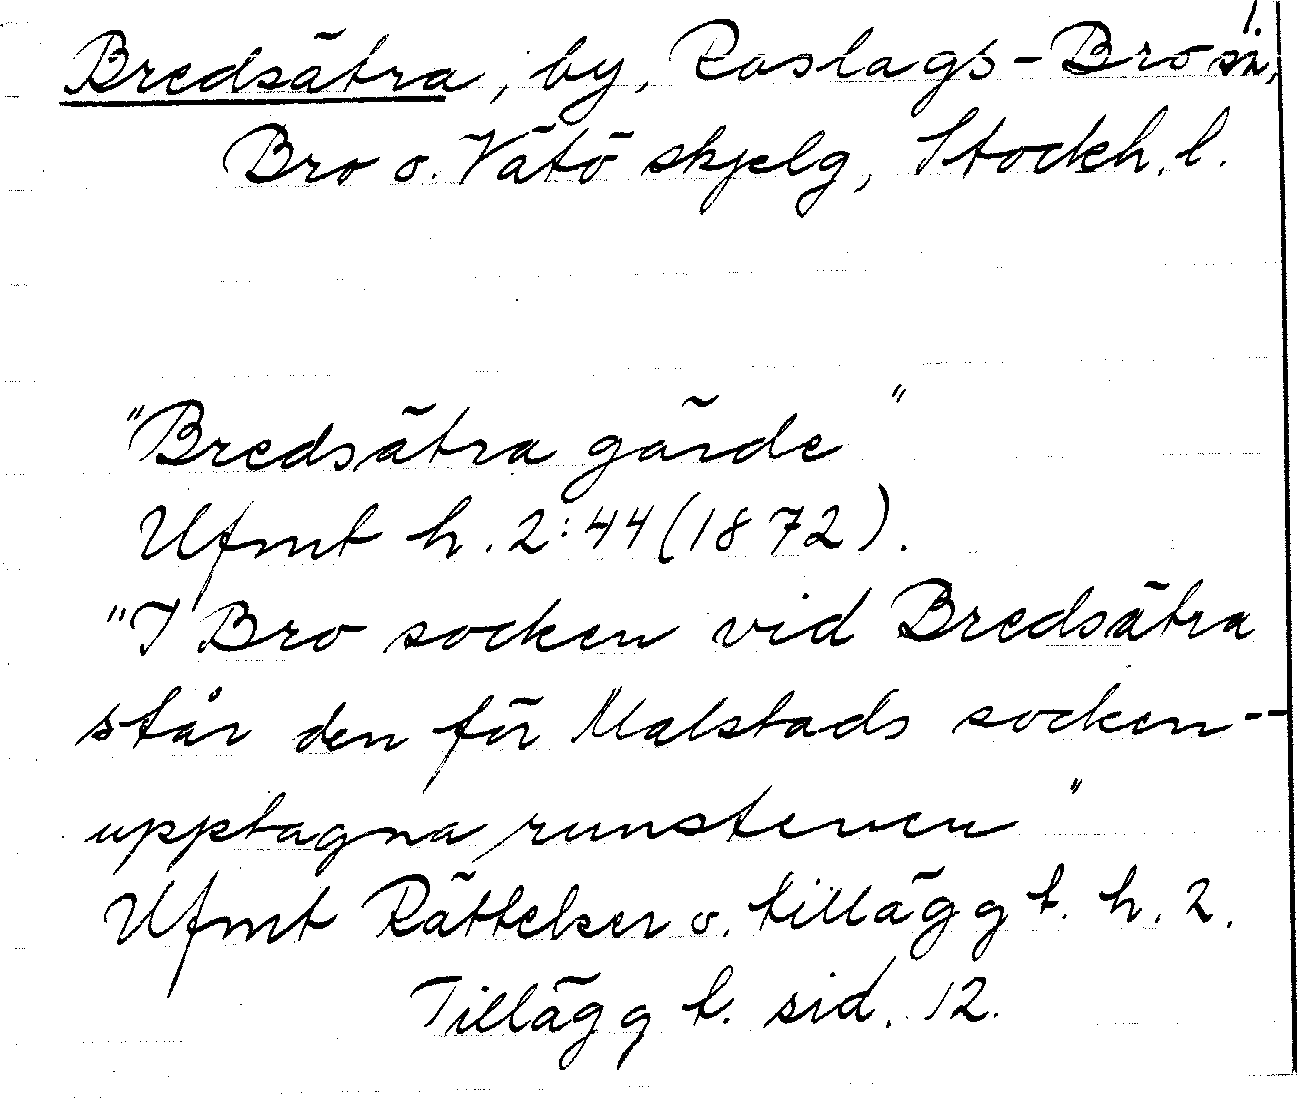 1.
Bredsätra, by, Roslags-Bro sn,
Bro o. Vätö skjelg, Stockh. l.
"Bredsätra gärde"
Ufmt h. 2:44 (1872).
"I Bro socken vid Bredsätra
står den för Malstads socken --
upptagna runstenen"
Ufmt Rättelser o. tillägg t. h. 2.
Tillägg t. sid. 12.